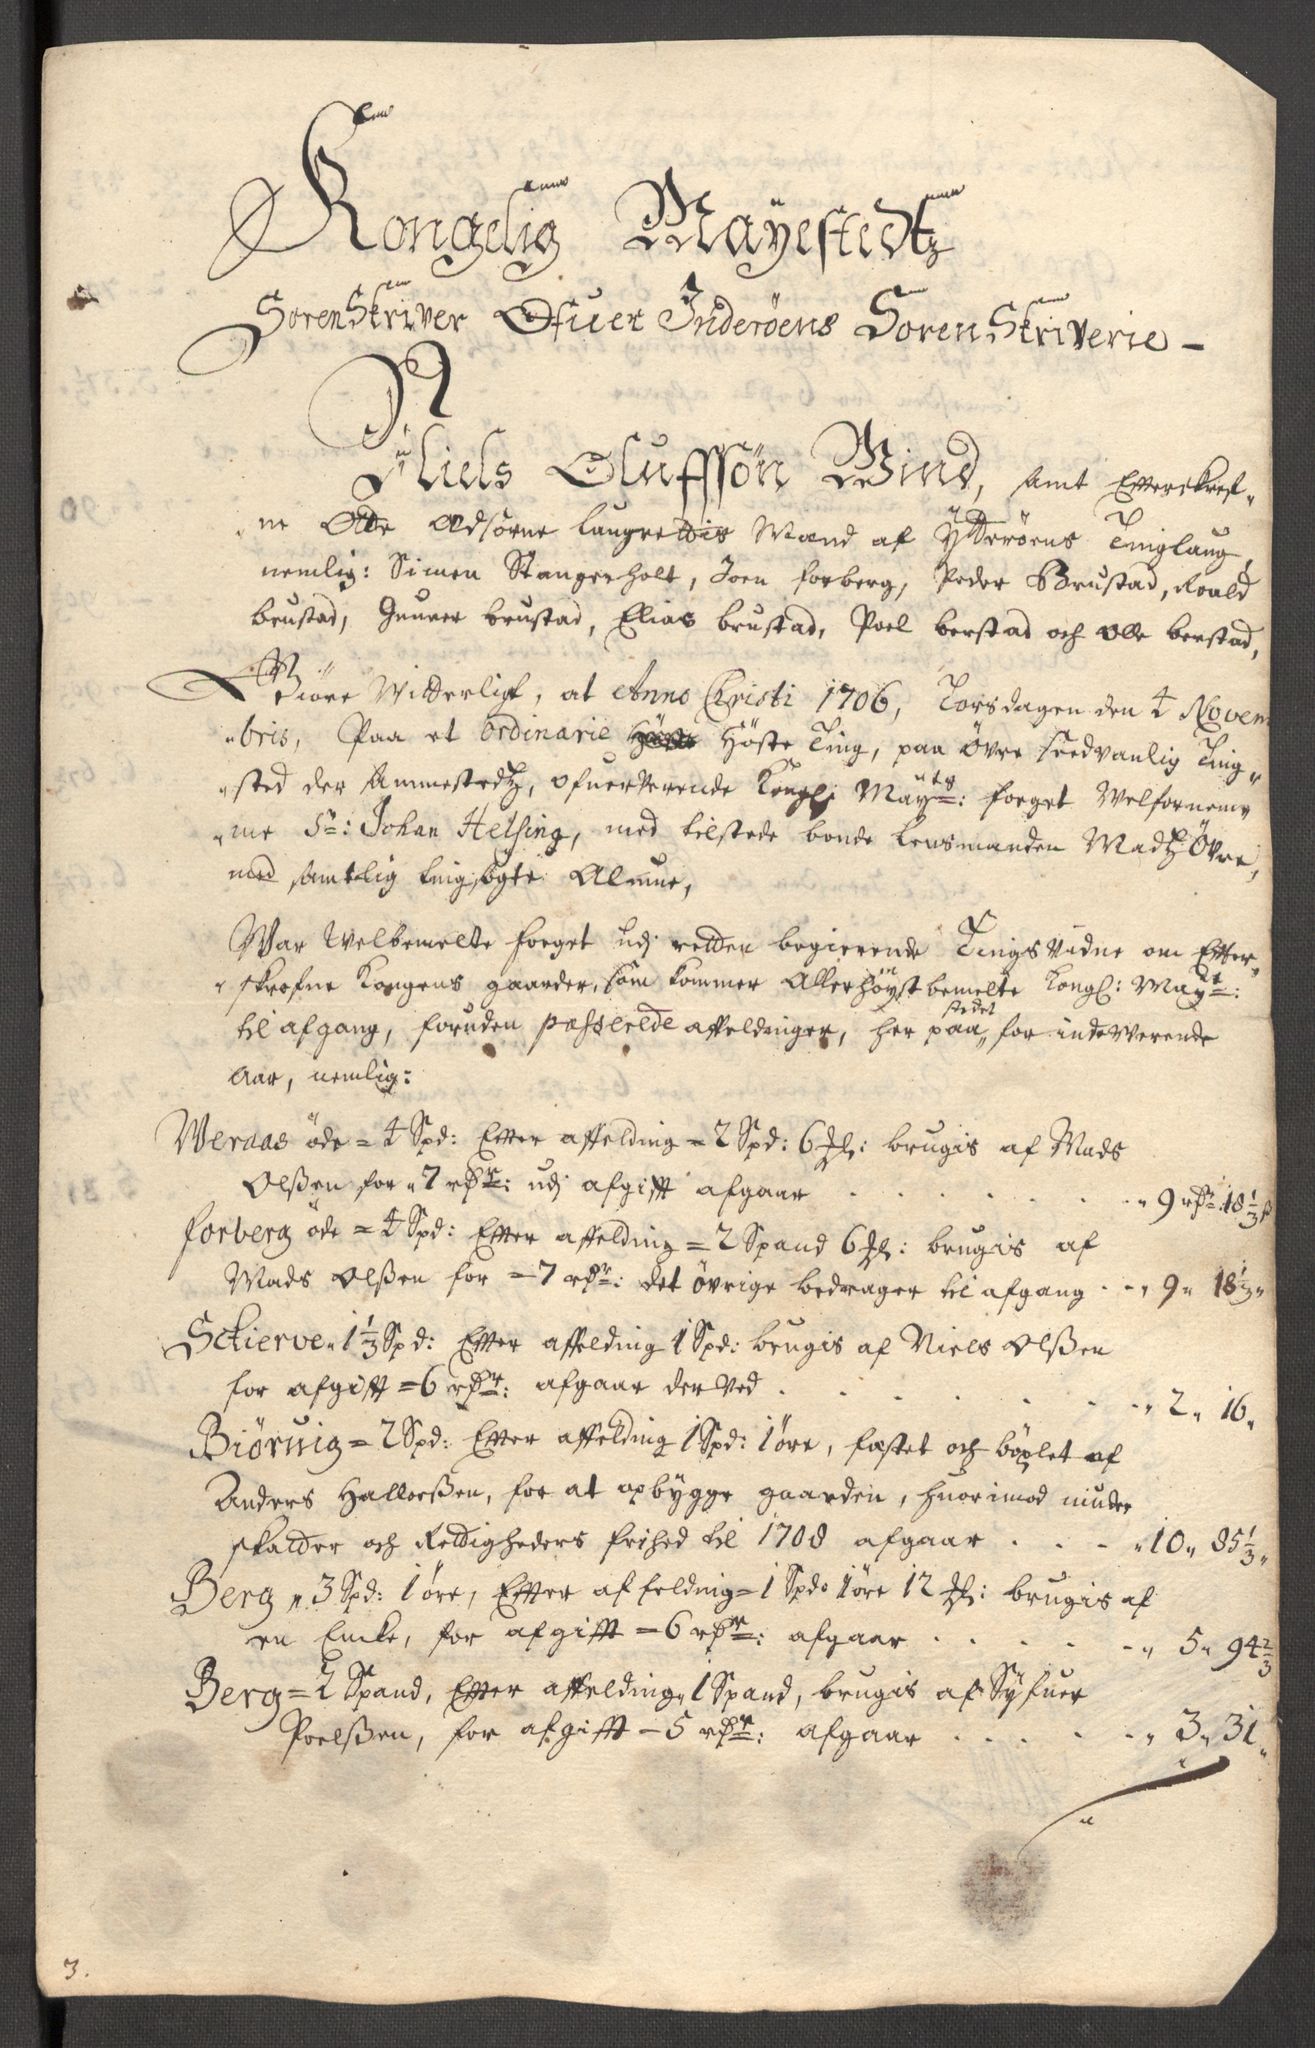 Kongelig Mayestedtz
SorenSkriver Ofuer Inderöens SorenSkriverie -
Niels Oluffsön Wind, samt Efterskref-
ne Otte Edsorne laugrettis Mænd af Ytterröens Tinglaug,
nemlig: Simen Stangerholt, Joen forberg, Peder Brustad, Roald
brustad, Gunner brustad, Elias brustad, Poel berstad och olle berstad,
Giöre Witterligt, at Anno Christi 1706, Torsdagen den 4 Novem
bris, Paa et ordinarie Höste Ting, paa Övre seedvanlig Ting-
sted der Ammestedtz, ofuerVerende Kongl: Mayts: foeget Welfornem-
me Sr: Johan Helsing, med tilstede bonde lensmanden Madtz Övre,
med samtlig tingsögte Almue,
War Welbemelte foeget udj retten begierende Tings Vidne om Efter-
skrefne Kongens gaarder, som kommer Allerhöyst bemelte Kongl: Mayt:
til afgang, foruden passerede affeldninger, her paa stedet for indeWerende
Aar, nemlig:
Weraas öde = 4 Spd: Efter affelding = 2 Spd: 6 Ml: brugis af Mads
Olßen for 7 rdr: udj afgifft afgaar . . . . . . 9 rdr. 18 1/3 s
forberg öde = 4 Spd: Efter affelding = 2 Spand 6 Ml: brugis af
Mads Olßen for = 7 rdr: det övrige bedrager til afgang . . 9 " 18 1/3 "
Schierve " 1 1/3 Spd: Efter affelding 1 Spd: brugis af Niels Olßen
for afgifft = 6 rdr: afgaar der Ved . . . . . . 2 " 16 "
Biörnig = 2 Spd: Efter affelding 1 Spd: 1 öre, fæstet och böxlet af
Anders Halloeßen, for at opbygge gaarden, huorimod niuder
skatter och Rettigheders frihed til 1708 afgaar . . . . " 10 " 85 1/3 "
Berg " 3 Spd: 1 öre, Efter affelding = 1 Spd: 1 öre 12 Ml: brugis af
en Encke, for afgifft = 6 rdr: afgaar . . . . . " 5 " 94 2/3
Berg = 2 Spand, Efter affelding " 1 Spand, brugis af Syfuer
Poelßen, for afgifft = 5 rdr: afgaar . . . . . " 3 " 31 "
3.